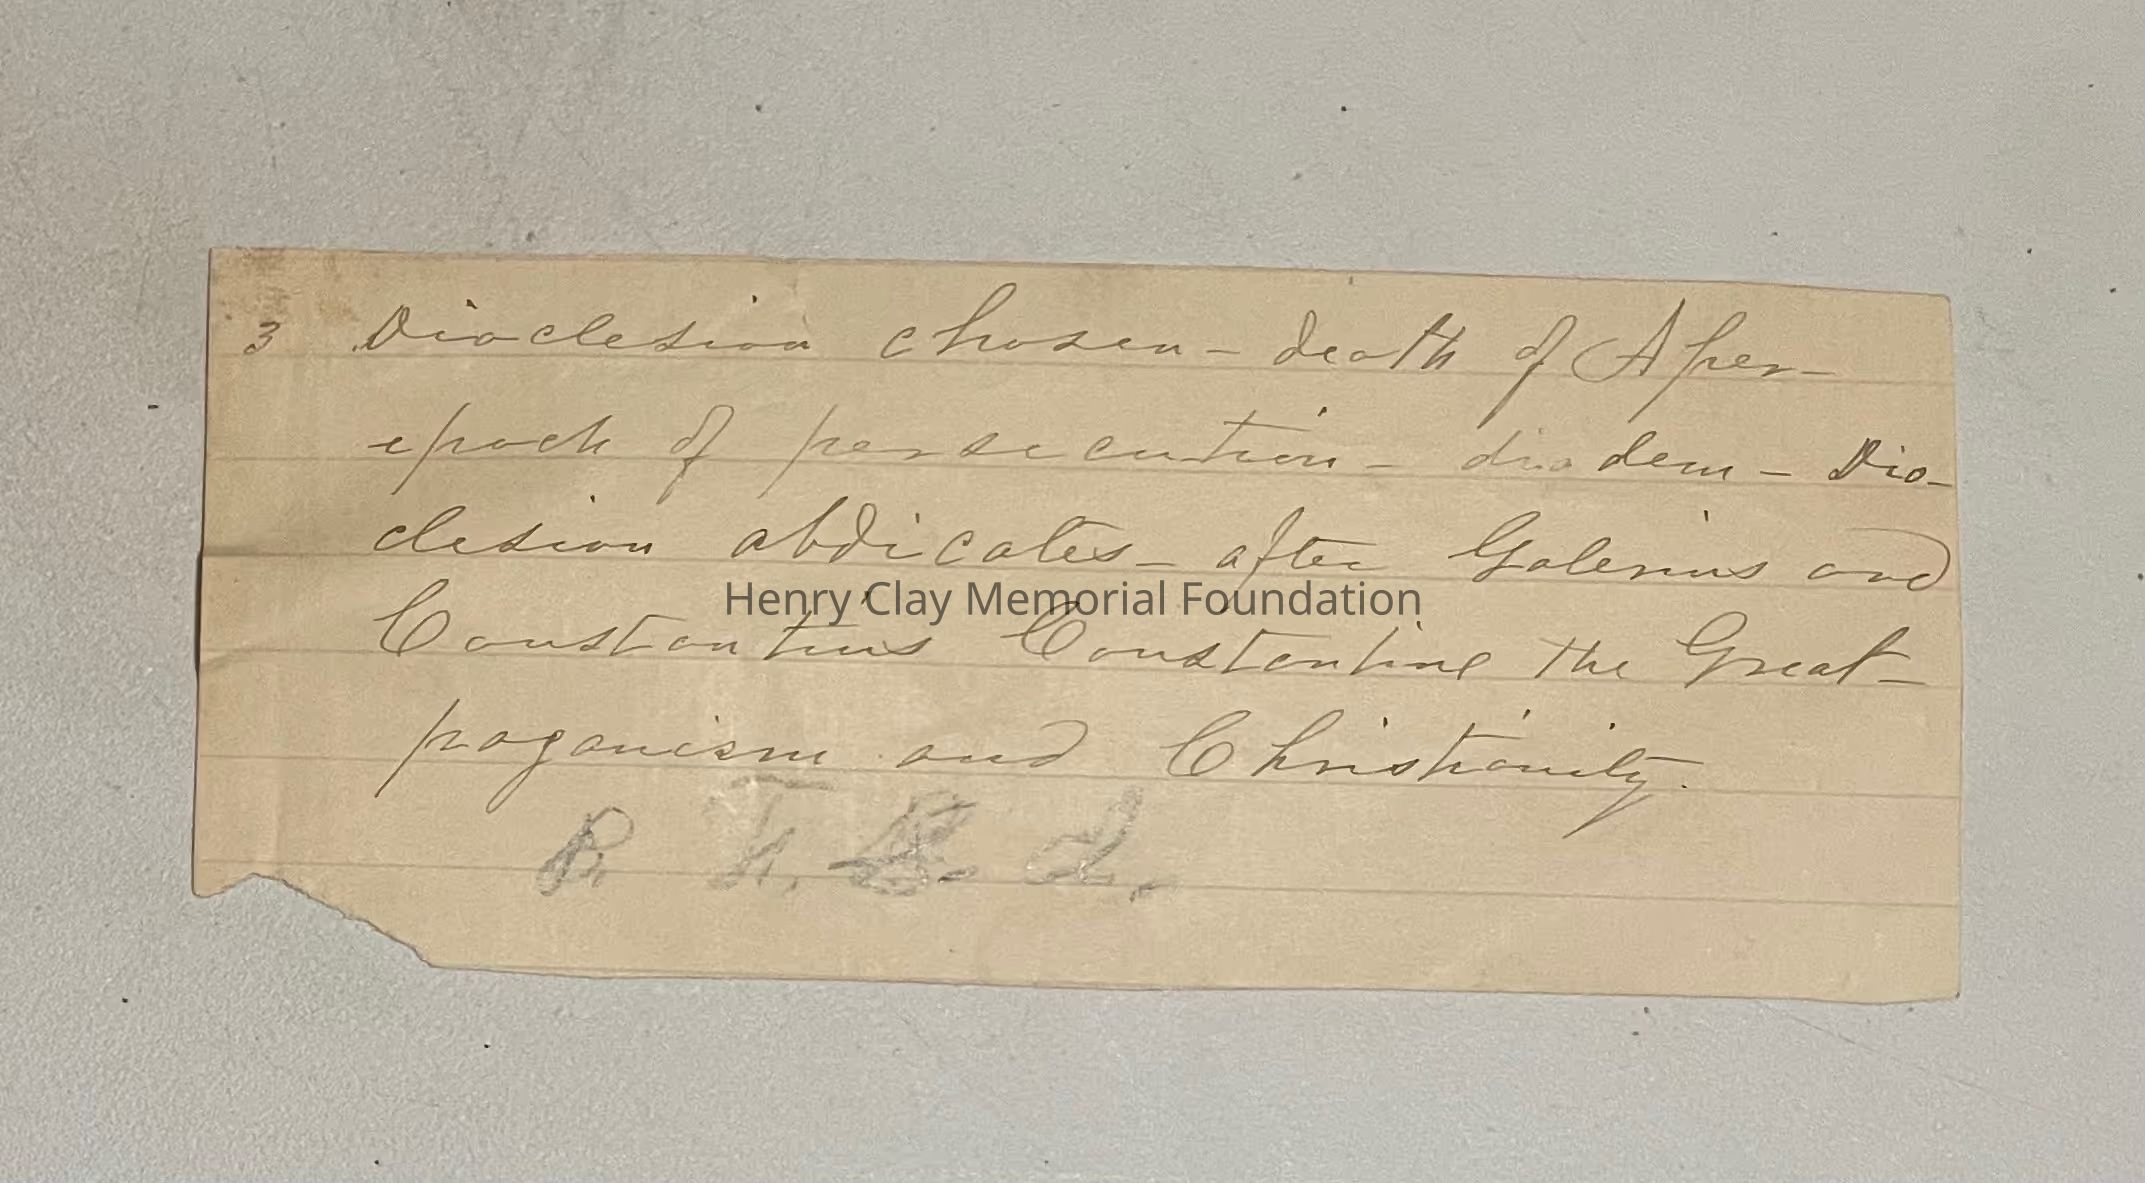 3 Dioclesian chosen - death of Aper -
epoch of persecution - diadem - Dio-
clesian abdicates - after Galerius and
Henry Clay Memorial Foundation
Constantius Constantine the Great -
paganism and Christianity.